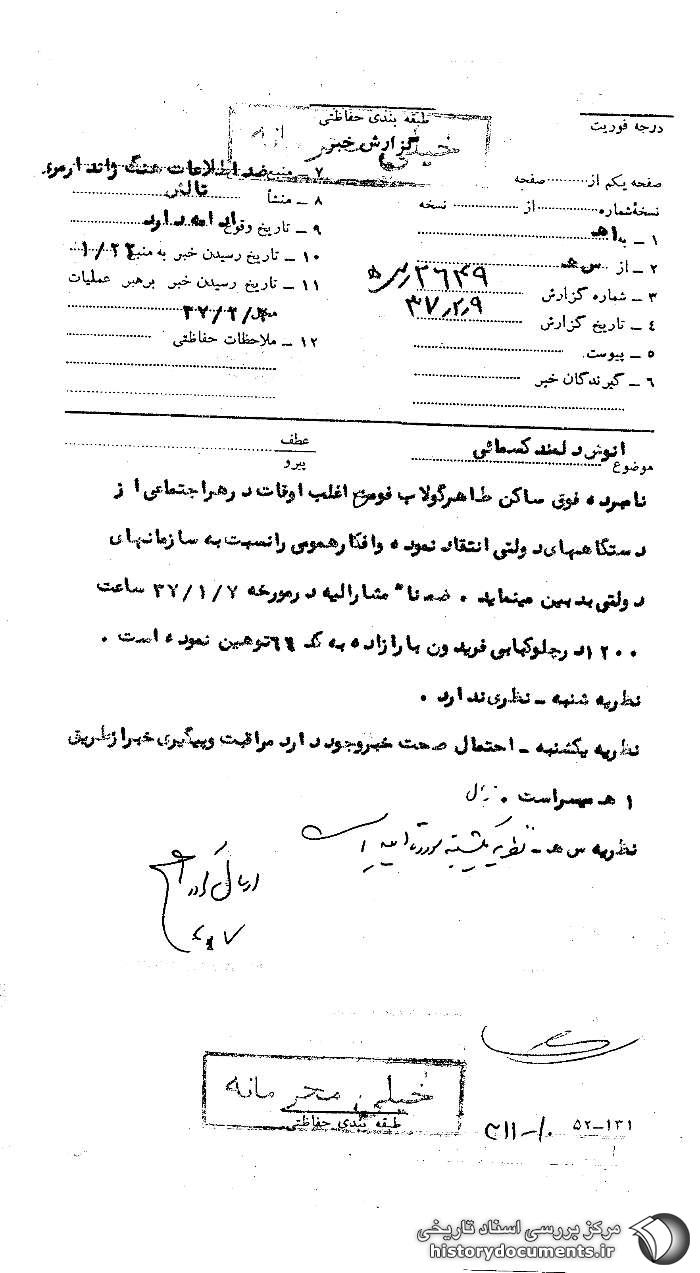 درجه فوریت
طبقه بندی حفاظتی
گزارش خبر
خیلی محرمانه
صفحه یکم از ........ صفحه
نسخهٔ شماره ........ از ........ نسخه
۱ ـ به ۱هـ
۲ ـ از س هـ
۳ ـ شماره گزارش ۲۶۴۹
۴ ـ تاریخ گزارش ۳۷٫۲٫۹
۵ ـ پیوست
۶ ـ گیرندگان خبر
۷ ـ منبع ضد اطلاعات هنگ ژاندارمری تالش
۸ ـ منشأ
۹ ـ تاریخ وقوع ادامه دارد
۱۰ ـ تاریخ رسیدن خبر به منبع ۱/۲۲
۱۱ ـ تاریخ رسیدن خبر برهبر عملیات
محل ۳۷/۲/
۱۲ ـ ملاحظات حفاظتی
موضوع انوش دلمند کسمائی
عطف
پیرو
نامبرده فوق ساکن طاهرگولاب فومن اغلب اوقات در هر اجتماعی از
دستگاههای دولتی انتقاد نموده وافکار عمومی را نسبت به سازمانهای
دولتی بدبین مینماید . ضمنا" مشارالیه در مورخه ۳۷/۱/۷ ساعت
۱۲۰۰ در چلوکبابی فریدون بارازاده به کد ۶۶ توهین نموده است .
نظریه شنبه ـ نظری ندارد .
نظریه یکشنبه ـ احتمال صحت خبر وجود دارد مراقبت وپیگیری خبر از طریق
۱ هـ میسر است .
نظریه س هـ ـ نظریه یکشنبه مورد تایید است
خیلی محرمانه
طبقه بندی حفاظتی
۵۲-۱۳۱
مرکز بررسی اسناد تاریخی
historydocuments.ir